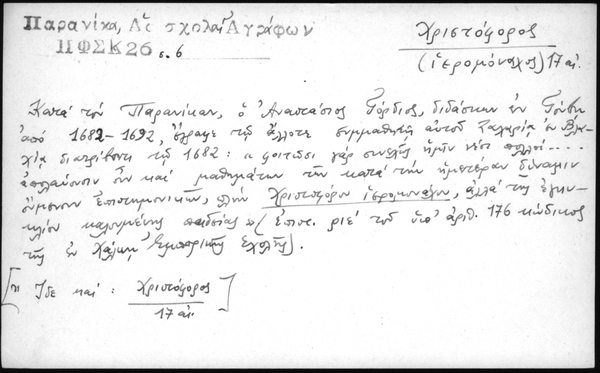 Παρανίκα, Αἱ σχολαί Ἀγράφων
ΠΦΣΚ26 σ. 6
Χριστόφορος
(ἱερομόναχος) 17 αἰ.
Κατά τόν Παρανίκαν, ὁ Ἀναστάσιος Γόρδιος, διδάσκων ἐν
ἀπό 1682-1692, ἔγραψε τῷ ἄλλοτε συμμαθητῇ αὐτοῦ Ζαχαρίᾳ ἐν Βλα-
χίᾳ διατρίβοντι τῷ 1682: « φοιτῶσι γάρ συνεχῶς ἡμῖν νέοι πολλοί....
ἀπολαύουσιν οὖν καί μαθημάτων τῶν κατά τήν ἡμετέραν δύναμιν
ἐπιστημονικῶν, πλήν Χριστοφόρου ἱερομονάχου, ἀλλά τῆς ἐγκυ-
κλίου καλουμένης παιδείας » (ἐπιστ. ριε' τοῦ ὑπ' ἀριθ. 176 κώδικος
τῆς ἐν Χάλκῃ Ἐμπορικῆς Σχολῆς).
[Ἴδε καί: Χριστόφορος
17 αἰ.]